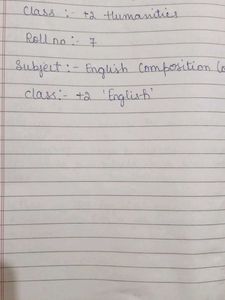 Class :- +2 Humanities
Roll no :- 7
Subject :- English Composition
class:- +2 'English'